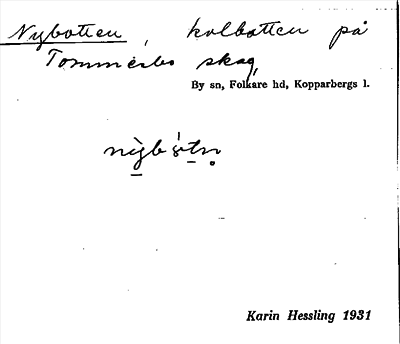 Nybotten, kolbotten på
Tommesbo skog,
By sn, Folkare hd, Kopparbergs l.
Karin Hessling 1931